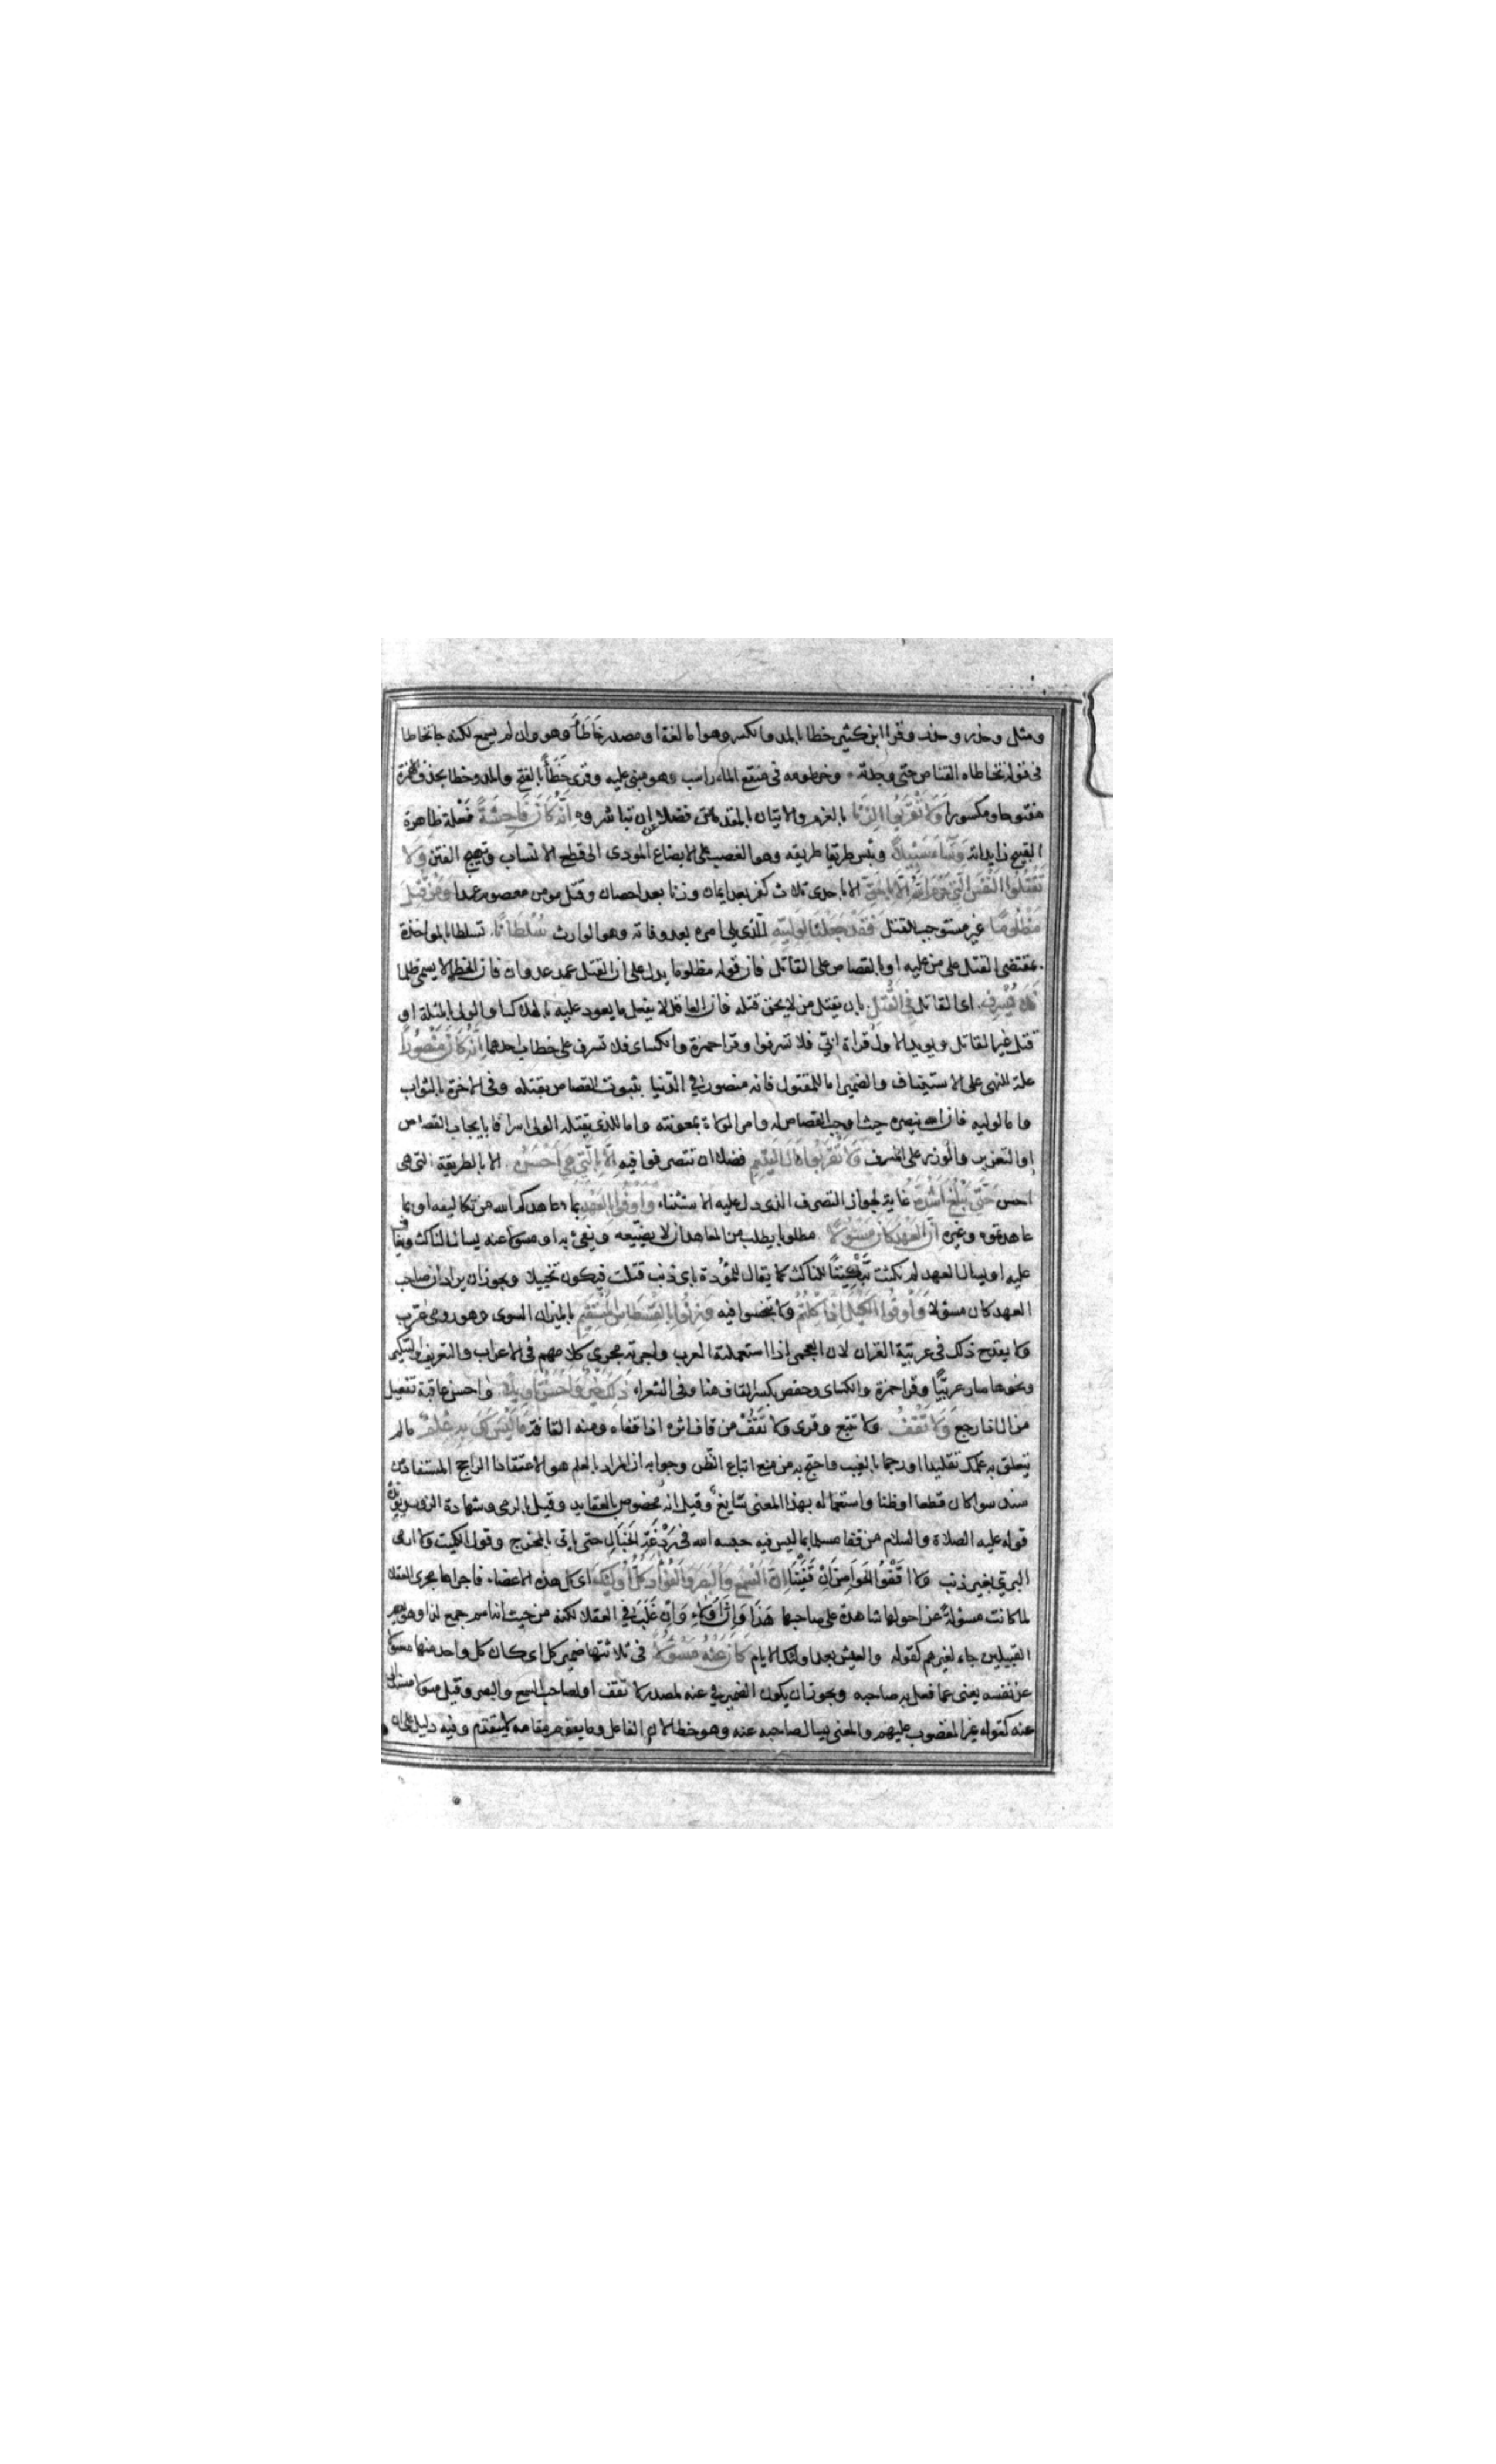 ومثل وحذر وحذر وقرا ابن كثير خطا بالمد والكسر وهو اما لغة او مصدر خَاطَأَ وهو وان لم يسمع لكنه جا تخاطا
فى قوله تخاطاه القناص حتى وجدته وخرطومه فى منقع الماء راسب وهو مبنى عليه وقرى خَطَأً بالفتح والمد وخطا بحذف الهمزة
مفتوحا ومكسورا وَلَا تَقْرَبُوا الزِّنَا بالعزم والاتيان بالمقدمات فضلا عن ان تباشروه اِنَّهُ كَانَ فَاحِشَةً فعْلة ظاهرة
القبح زايدته وَسَآءَ سَبِيلًا وبئس طريقا طريقه وهو الغصب على الابضاع المودى الى قطع الانساب وتهييج الفتن وَلَا
تَقْتُلُوا النَّفْسَ الَّتِي حَرَّمَ اللهُ اِلَّا بِالْحَقِّ الا باحدى ثلاث كفر بعد ايمان وزنا بعد احصان وقتل مومن معصوم عمدا وَمَنْ قُتِلَ
مَظْلُومًا غير مستوجب القتل فَقَدْ جَعَلْنَا لِوَلِيِّهِ للذى يلى امره بعد وفاته وهو الوارث سُلْطَانًا تسلطا بالمواخذة
بمقتضى القتل على من عليه او بالقصاص على القاتل فان قوله مظلوما يدل على ان القتل عمد عدوان فان الخطا لا يسمى ظلما
فَلَا يُسْرِفْ اى القاتل فِي الْقَتْلِ بان يقتل من لا يحق قتله فان العاقل لا يفعل ما يعود عليه بالهلاك او الولى بالمثلة او
قتل غير القاتل ويويد الاول قراة ابيّ فلا تسرفوا وقرا حمزة والكساى فلا تسرف على خطاب احدهما اِنَّهُ كَانَ مَنْصُورًا
علة النهى على الاستيناف والضمير اما للمقتول فانه منصور في الدّنيا بثبوت القصاص بقتله وفى الاخرة بالثواب
واما لوليه فان الله نصره حيث اوجب القصاص له وامر الولاة بمعونته واما للذى يقتله الولى اسرافا بايجاب القصاص
او التعزير والوزر على المسرف وَلَا تَقْرَبُوا مَالَ الْيَتِيمِ فضلا ان تتصرفوا فيه اِلَّا بِالَّتِي هِيَ اَحْسَنُ الا بالطريقة التى هى
احسن حَتَّى يَبْلُغَ اَشُدَّهُ غاية لجواز التصرف الذى دل عليه الاستثناء وَاَوْفُوا بِالْعَهْدِ بما عاهدكم الله من تكاليفه او بما
عاهدتموه وغيره اِنَّ الْعَهْدَ كَانَ مَسْئُولًا مطلوبا يطلب من المعاهد ان لا يضيّعه ويفئ به او مسولا عنه يسال الناكث ويعاقب
عليه او يسال العهد لم نكثت تَبْكِيتًا للناكث كما يقال للموءدة باى ذنب قتلت فيكون تخييلا ويجوز ان يراد ان صاحب
العهد كان مسؤلا وَاَوْفُوا الْكَيْلَ اِذَا كِلْتُمْ ولا تبخسوا فيه وَزِنُوا بِالْقِسْطَاسِ الْمُسْتَقِيمِ بالميزان السوى وهو رومى عُرّب
ولا يقدح ذلك فى عربية القران لان العجمى اذا استعملته العرب واجرته مجرى كلامهم فى الاعراب والتعريف والتنكير
ونحوها صار عربيًّا وقرا حمزة والكساى وحفص بكسر القاف هنا وفى الشعراء ذَلِكَ خَيْرٌ وَاَحْسَنُ تَاْوِيلًا واحسن عاقبة تفعيل
من ال اذا رجع وَلَا تَقْفُ ولا تتبع وقرى ولا تَقُفْ من قاف اثره اذا قفاه ومنه القافة مَا لَيْسَ لَكَ بِهِ عِلْمٌ ما لم
يتعلق به علمك تقليدا او رجما بالغيب واحتج به من منع اتباع الظّن وجوابه ان المراد بالعلم هو الاعتقاد الراجح المستفاد من
سند سوا كان قطعا او ظنا واستعماله بهذا المعنى شايع وقيل انه مخصوص بالعقايد وقيل بالرمى وشهادة الزور ويويده
قوله عليه الصلاة والسلام من قفا مسلما بما ليس فيه حبسه الله فى رَدْغَةِ الخَبَالِ حتى ياتى بالمخرج وقول الكميت ولا ارمى
البري بغير ذنب ولا اقْفُو الحواصن اِنْ قَفَيْنَا اِنَّ السَّمْعَ وَالْبَصَرَ وَالْفُؤَادَ كُلُّ اُولَئِكَ اى كل هذه الاعضاء فاجراها مجرى العقلا
لما كانت مسؤلةً عن احوالها شاهدة على صاحبها هَذَا وَاِنَّ اُولَاءِ وَاِنْ غَلَبَ في العقلا لكنه من حيث انه اسم جمع لذا وهو يعم
القبيلين جاء لغيرهم كقوله والعيش بعد اولئك الايام كَانَ عَنْهُ مَسْئُولًا فى ثلاثتها ضمير كل اى كان كل واحد منها مسولا
عن نفسه يعنى عما فعل به صاحبه ويجوز ان يكون الضمير في عنه لمصدر لا تقف او لصاحب السمع والبصر وقيل مسولا مسند الى
عنه كقوله غير المغضوب عليهم والمعنى يسال صاحبه عنه وهو خطا لان الفاعل وما يقوم مقامه لا يتقدم وفيه دليل على ان